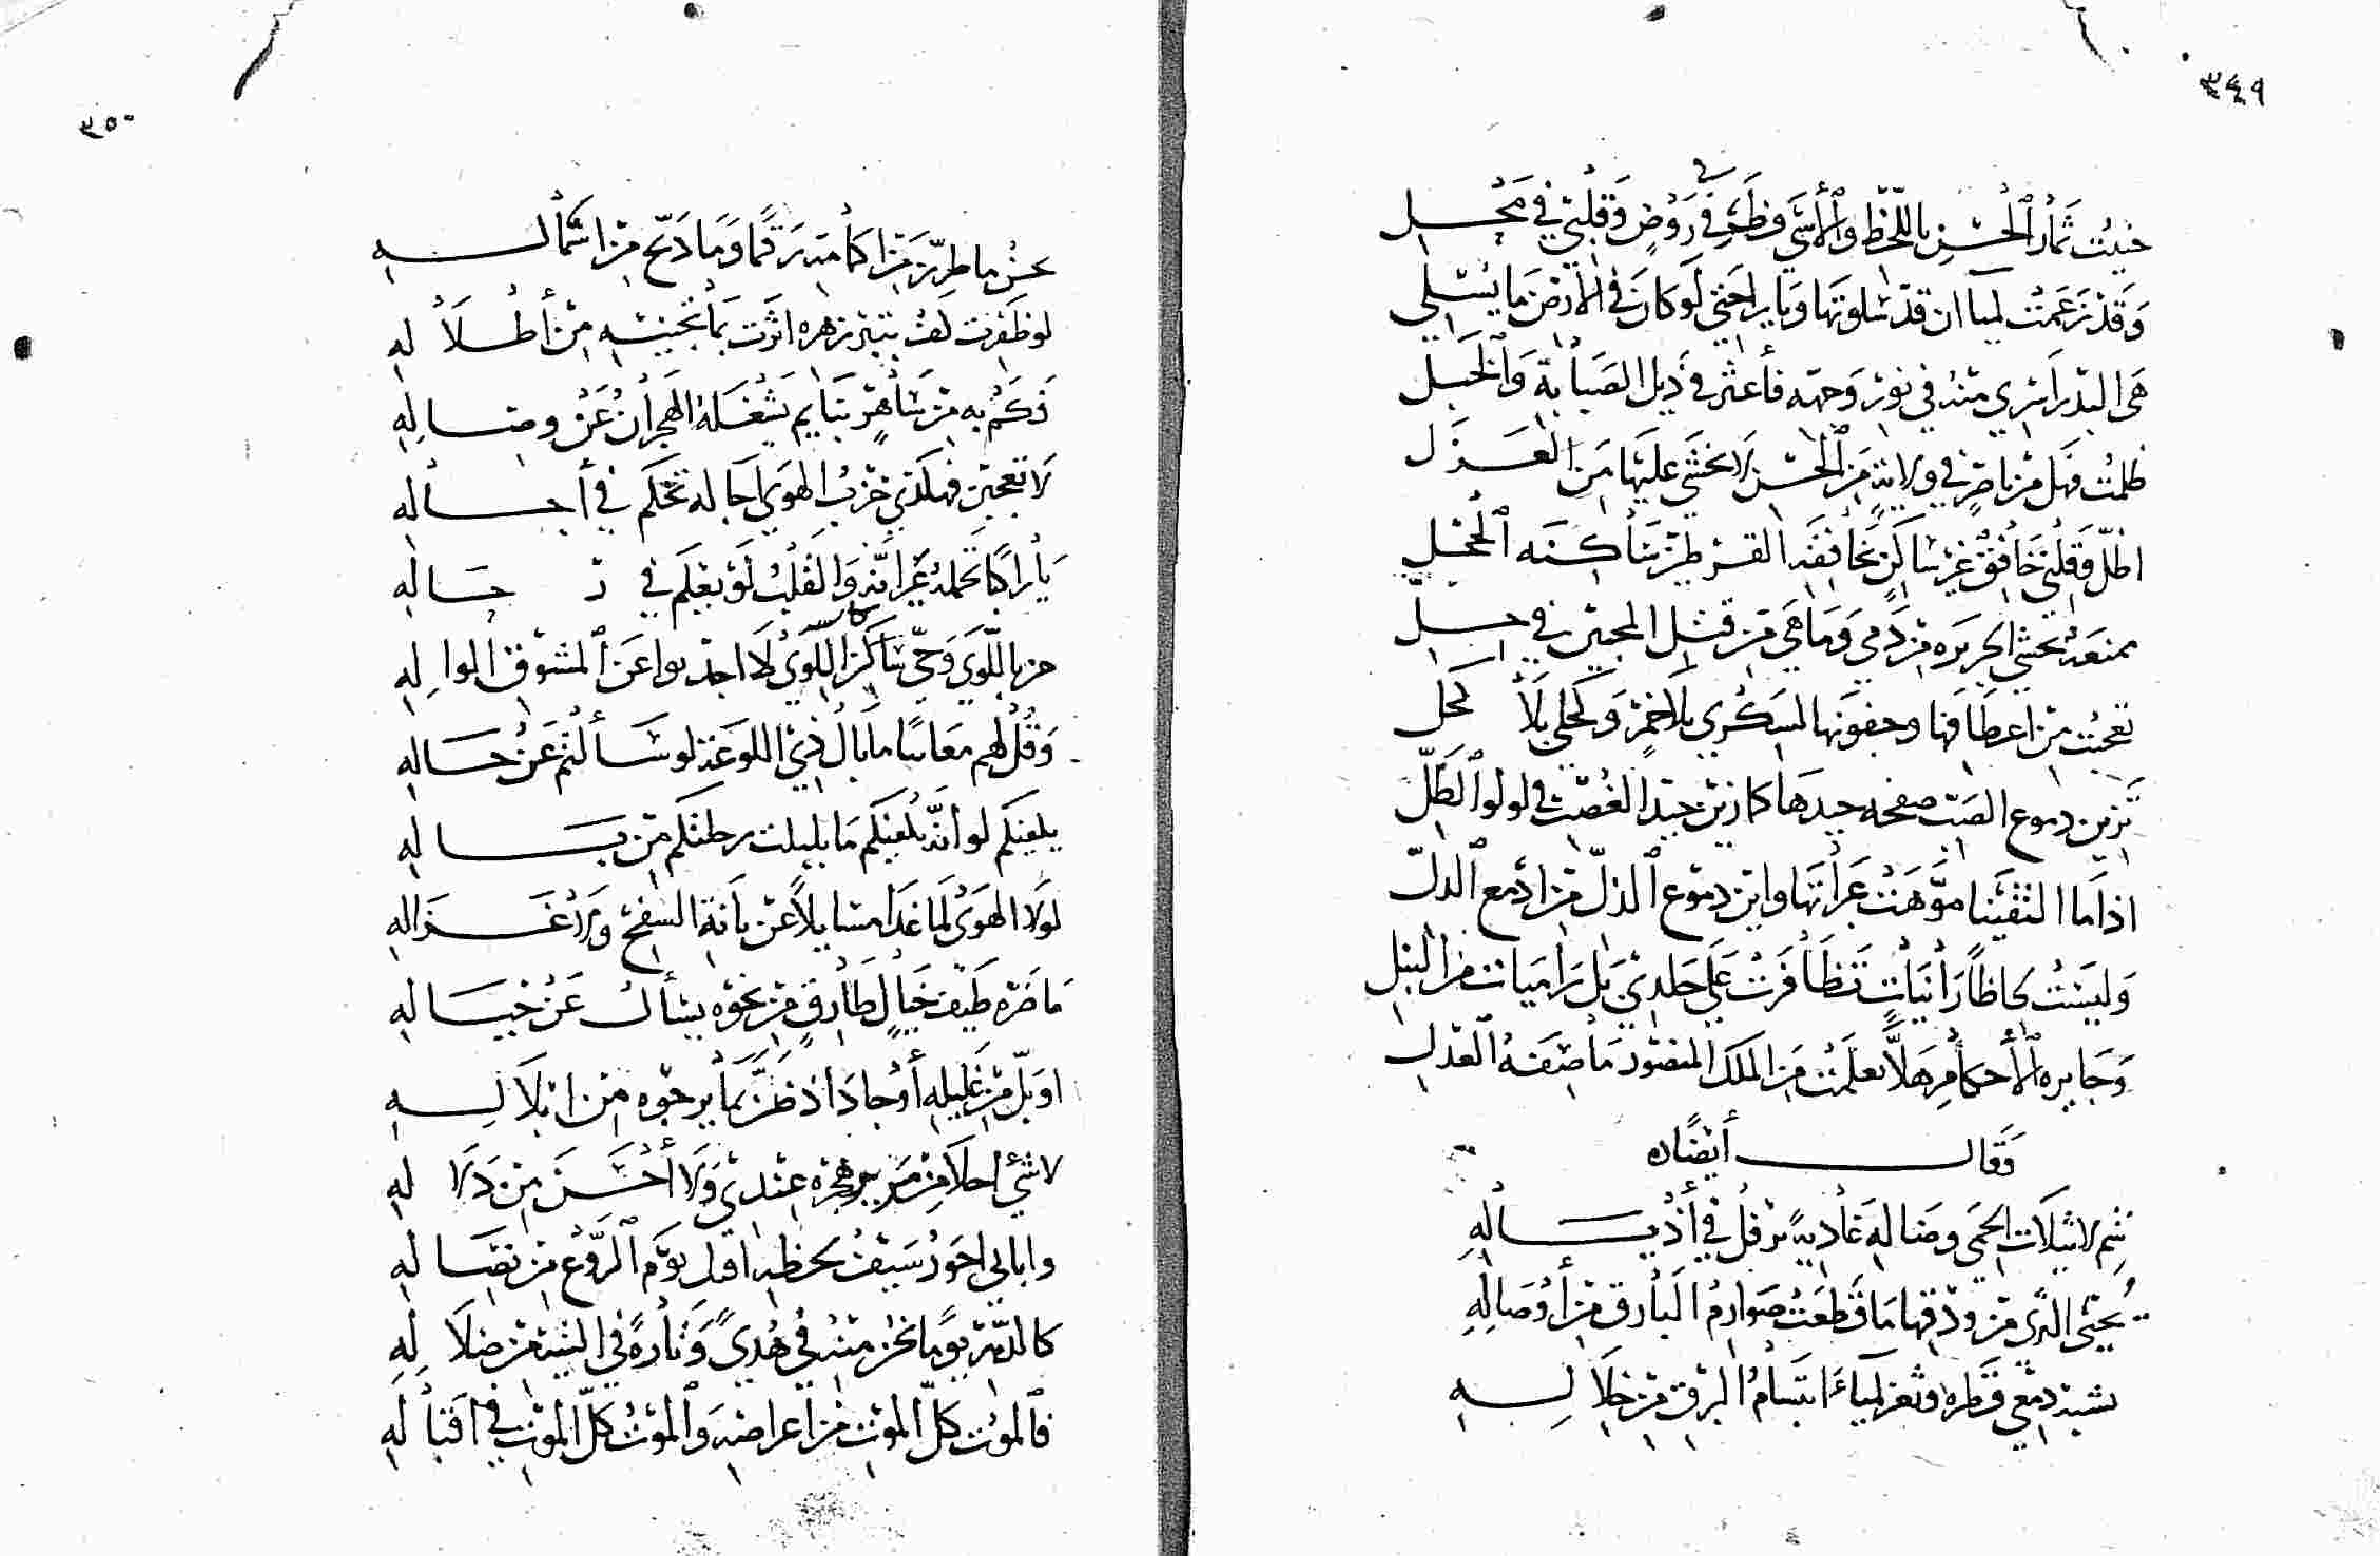 ٣٤٩
جنيت ثمار الحسن باللحظ والأسى فطرفي في روض وقلبي في محل
وقد زعمت لمياء ان قد سلوتها ويا راحتي لو كان في الارض ما يسلي
هي البدر اسري منه في نور وجهه فأعثر في ذيل الصبابة والخبل
ظلمت فهل من ناصر في ولاية من الحسن لا يخشى عليها من العزل
اظل وقلبي خافق غير ساكن
ممنعة تخشى الجريره من دمي وما هي من قتل المحبين في حل
تعجبت من اعطافها وجفونها السكرى بلا خمر وكحلى بلا كحل
تزين دموع الصب صفحه جيدها كما زين جيد الغصن لولو الطل
اذا ما التقينا موهت عبراتها واين دموع الذل من ادمع الدل
وليست لحاظا رانيات تظافرت على جلدي بل راميات من النبل
وجايره الأحكام هلا تعلمت من الملك المنصور ما صفه العدل
وقال أيضا
لاثيلات الحمى وضاله غادية ترفل في أذياله
يحيى الثرى من ودقها ما قطعت صوارم البارق من أوصاله
دمعي قطره وثغر لمياء ابتسام البرق من خلاله
٣٥٠
من اكمامه رقما وما دبج من اشماله
لو ظفرت كف بتبر زهره اثرت بما تجنيه من أطلاله
فكم به من ساهر بنايم يشغله الهجران عن وصاله
لا تعجبن فهكذي حزب الهوى اجاله تحكم في أجساله
يا راكبا تحمله عيرانة والقلب لو يعلم في حاله
جز باللوى وحي سكان اللوى عن المشوق الواله
وقل لهم معاتبا ما بال ذي اللوعة لو سألتم عن حاله
يلعبكم لو انه يلعبكم ما بلبلت رحلتكم من باله
لولا الهوى لما غدا مسايلا عن بانة السفح وعن غزاله
ما ضره طيف خيال طارق من نحوه يسأل عن خياله
او بل من غليله أو جاد اذ ظن بما يرجوه من ابلاله
لا شئ احلا من مرير هجره عندي ولا أحسن من دلاله
وابابي احور سيف لحظه اقتل يوم الروع من نصاله
كالدهر يوما نحن منه في هدى وتارة في التيه من ضلاله
فالموت كل الموت من اعراضه والموت كل الموت في اقباله